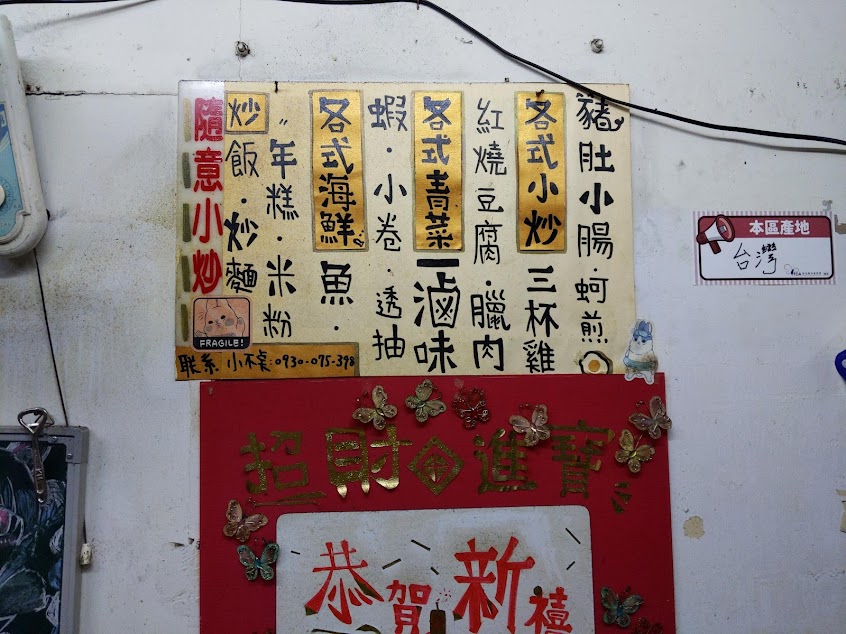 豬肚小腸·蚵煎
各式小炒 三杯雞
紅燒豆腐·臘肉
各式青菜 一滷味
蝦·小卷·透抽
各式海鮮 魚·
〃年糕·米粉
炒飯·炒麵
隨意小炒
FRAGILE!
聯系 小不点:0930-075-398
本區產地
台灣
招財進寶
恭賀新禧